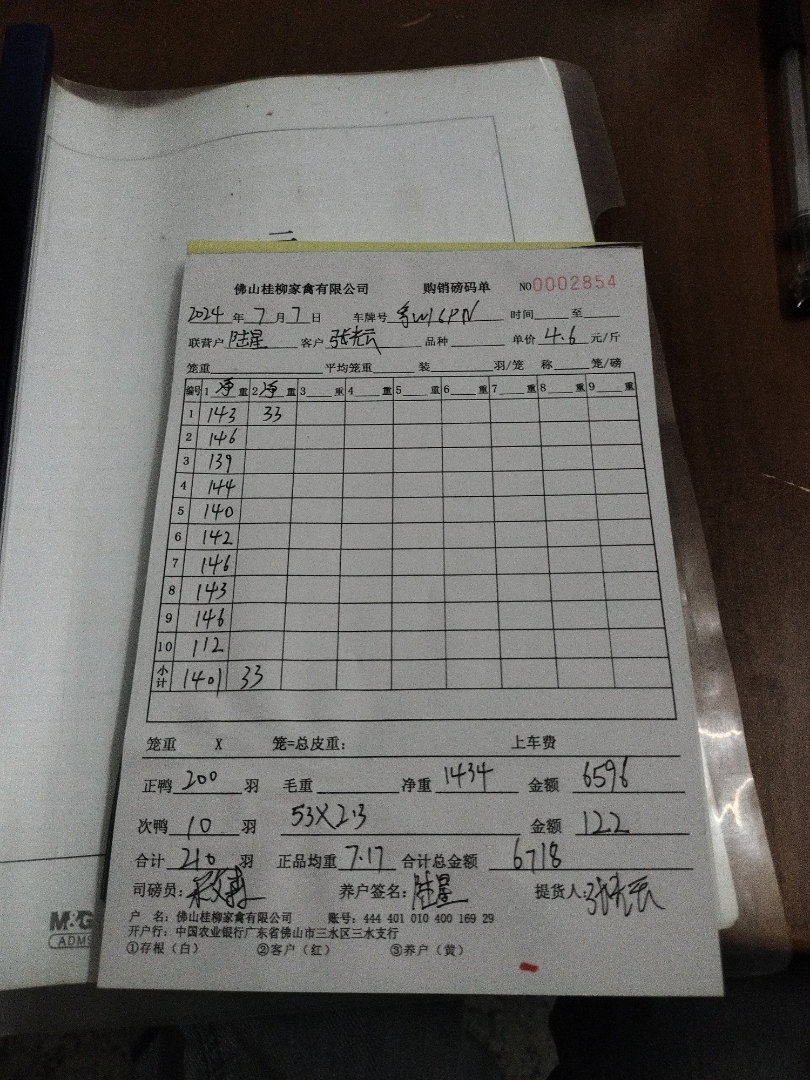 佛山桂柳家禽有限公司 购销磅码单 NO0002854
2024年7月7日 车牌号 粤W16PN 时间 至
联营户 陆星 客户 张光云 品种 单价 4.6 元/斤
笼重 平均笼重 装 羽/笼 称 笼/磅
编号 1 净 重 2 净 重 3 重 4 重 5 重 6 重 7 重 8 重 9 重
1 143 33
2 146
3 139
4 144
5 140
6 142
7 146
8 143
9 146
10 112
小计 1401 33
笼重 X 笼=总皮重: 上车费
正鸭 200 羽 毛重 净重 1434 金额 6596
次鸭 10 羽 53X2.3 金额 122
合计 210 羽 正品均重 7.17 合计总金额 6718
司磅员: 养户签名: 陆星 提货人: 张光云
户 名: 佛山桂柳家禽有限公司 账号: 444 401 010 400 169 29
开户行: 中国农业银行广东省佛山市三水区三水支行
①存根(白) ②客户(红) ③养户(黄)
M&G